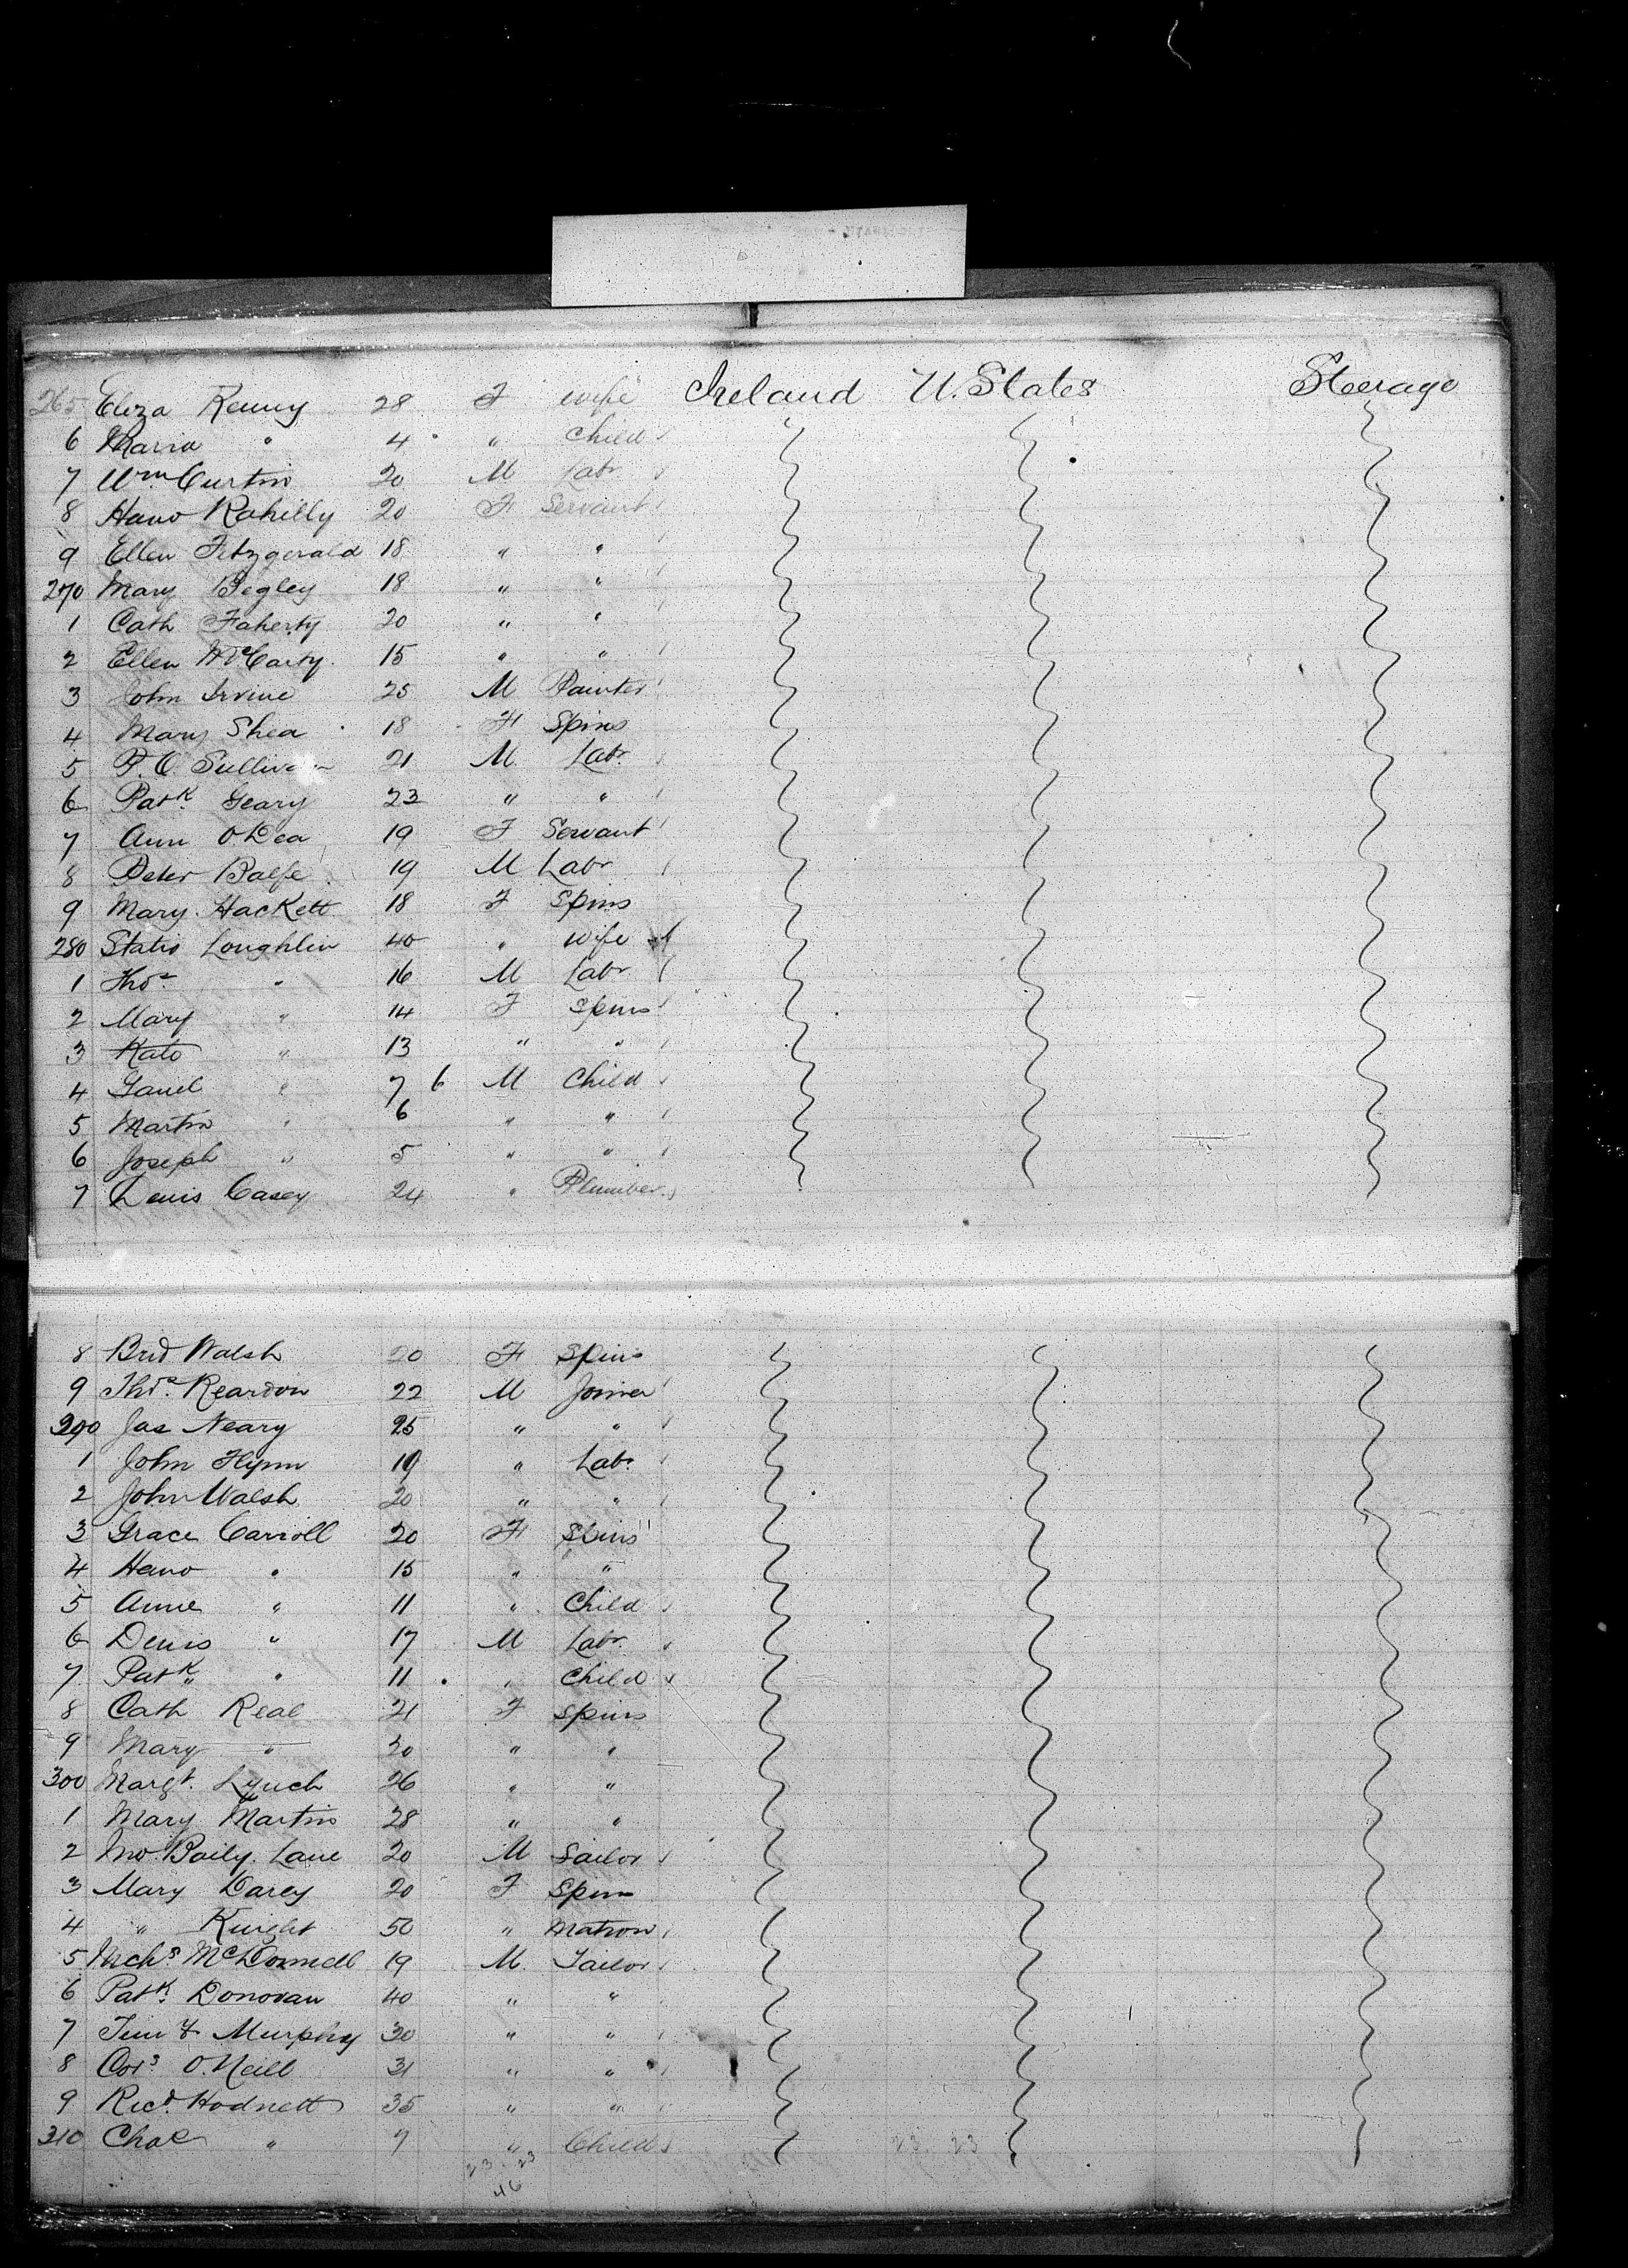 265 Eliza Kenny 28 F wife Ireland U. States Steerage
6 Maria " 4 " Child
7 Wm. Curtin 20 M Labr
8 Hano Rahilly 20 F Servant
9 Ellen Fitzgerald 18 " "
270 Mary Begley 18 " "
1 Cath Faherty 20 " "
2 Ellen McCarty 15 " "
3 John Irvine 25 M Painter
4 Mary Shea 18 F Spins
5 P. O. Sullivan 21 M Labr
6 Patk. Geary 23 " "
7 Ann O Dea 19 F Servant
8 Peter Balfe 19 M Labr
9 Mary Hackett 18 F Spins
280 Statio Loughlin 40 " wife
1 Thos " 16 M Labr
2 Mary " 14 F Spins
3 Kate " 13 " "
4 " 7 6 M Child
5 Martin " 6 " "
6 Joseph " 5 " "
7 Denis Casey 24 " Plumber
8 Brid Walsh 20 F Spins
9 Thos. Reardon 22 M Joiner
290 Jas Neary 25 " "
1 John Flynn 19 " Labr
2 John Walsh 20 " "
3 Grace Carroll 20 F Spins
4 Hano " 15 " "
5 Anne " 11 " Child
6 Denis " 17 M Labr.
7 Patk " 11 " Child
8 Cath Real 21 F Spins
9 Mary " 20 " "
300 Margt. Lynch 26 " "
1 Mary Martin 28 " "
2 Jno. Baily. Lane 20 M Sailor
3 Mary Darcy 20 F Spins
4 " Knight 50 " Matron
5 Michs McDonnell 19 M. Tailor
6 Patk. Donovan 40 " "
7 Tim Y. Murphy 30 " "
8 Cors O. Neill 31 " "
9 Ricd. Hodnett 35 " "
310 Chas " 7 " Child
23 23 23 23
46